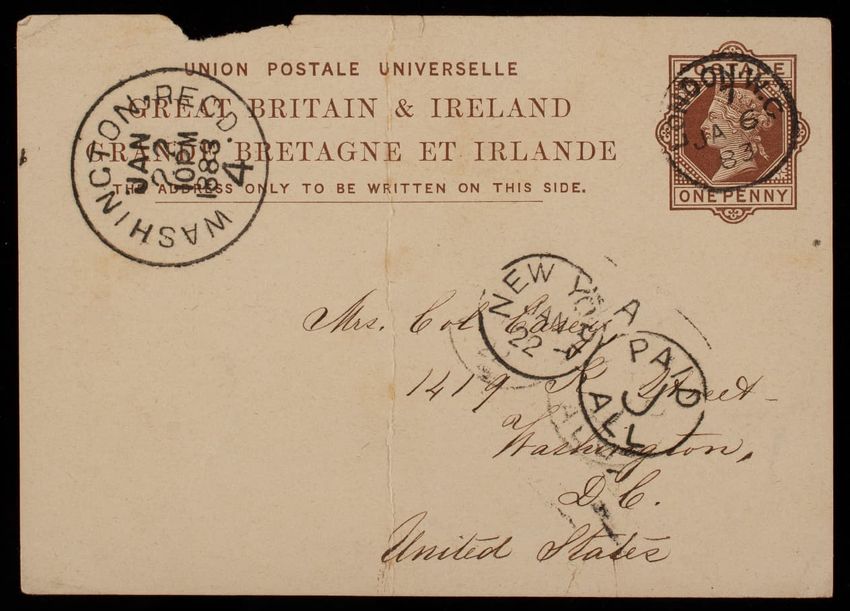 UNION POSTALE UNIVERSELLE
GREAT BRITAIN & IRELAND
GRANDE BRETAGNE ET IRLANDE
THE ADDRESS ONLY TO BE WRITTEN ON THIS SIDE.
POSTAGE
ONE PENNY
LONDON.W.C
1
JA 6
83
WASHINGTON. REC'D.
JAN
22
10PM
1883
4
NEW YORK
JAN
22
A
PAID
J
ALL
Mrs. Col. Casey
1419 K Street
Washington,
D.C.
United States